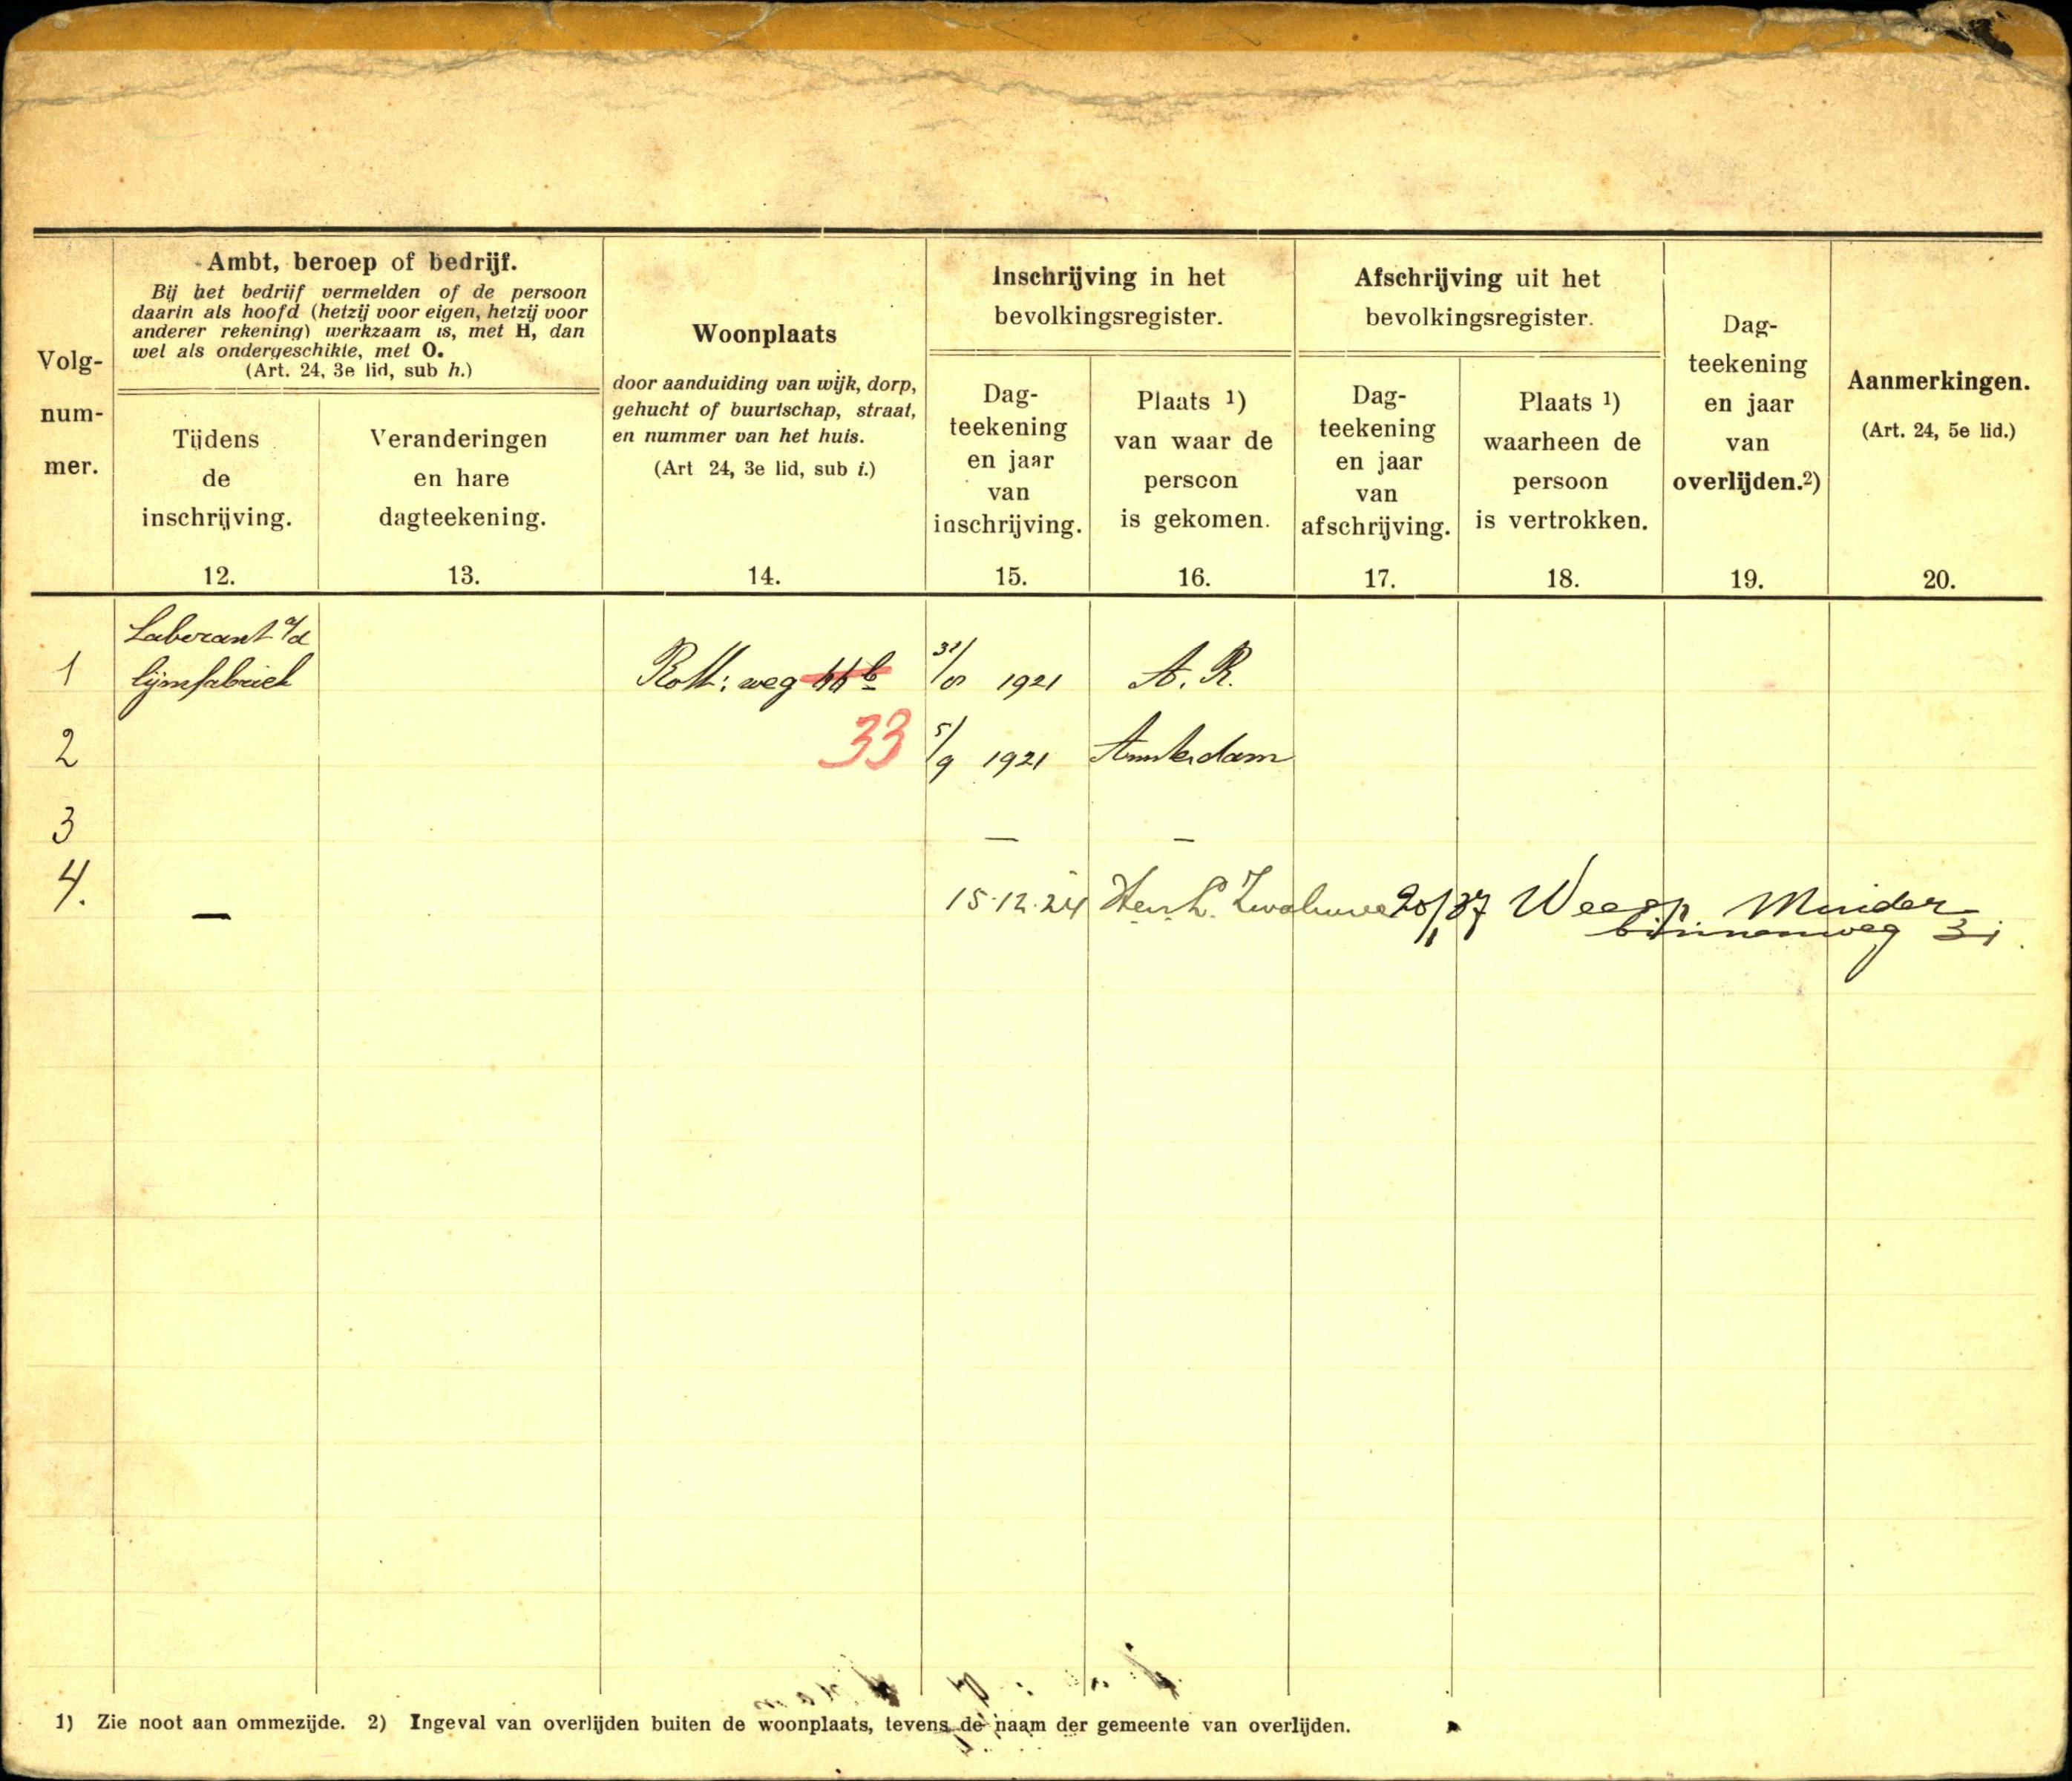 Volg-
num-
mer.
Ambt, beroep of bedrijf.
Bij het bedrijf vermelden of de persoon
daarin als hoofd (hetzij voor eigen, hetzij voor
anderer rekening) werkzaam is, met H, dan
wel als ondergeschikte, met O.
(Art. 24, 3e lid, sub h.)
Tijdens
de
inschrijving.
12.
Veranderingen
en hare
dagteekening.
13.
Woonplaats
door aanduiding van wijk, dorp,
gehucht of buurtschap, straat,
en nummer van het huis.
(Art 24, 3e lid, sub i.)
14.
Inschrijving in het
bevolkingsregister.
Dag-
teekening
en jaar
van
inschrijving.
15.
Plaats 1)
van waar de
persoon
is gekomen.
16.
Afschrijving uit het
bevolkingsregister.
Dag-
teekening
en jaar
van
afschrijving.
17.
Plaats 1)
waarheen de
persoon
is vertrokken.
18.
Dag-
teekening
en jaar
van
overlijden.2)
19.
Aanmerkingen.
(Art. 24, 5e lid.)
20.
Laborant a/d
1 lijmfabriek Rott: weg 31/8 1921 A. R.
2 33 5/9 1921 Amsterdam
3 — —
4. — 15.12.24 Hen. L. Zwaluwe 20/1 37 Weesp. Muider
binnenweg 31.
1) Zie noot aan ommezijde. 2) Ingeval van overlijden buiten de woonplaats, tevens de naam der gemeente van overlijden.